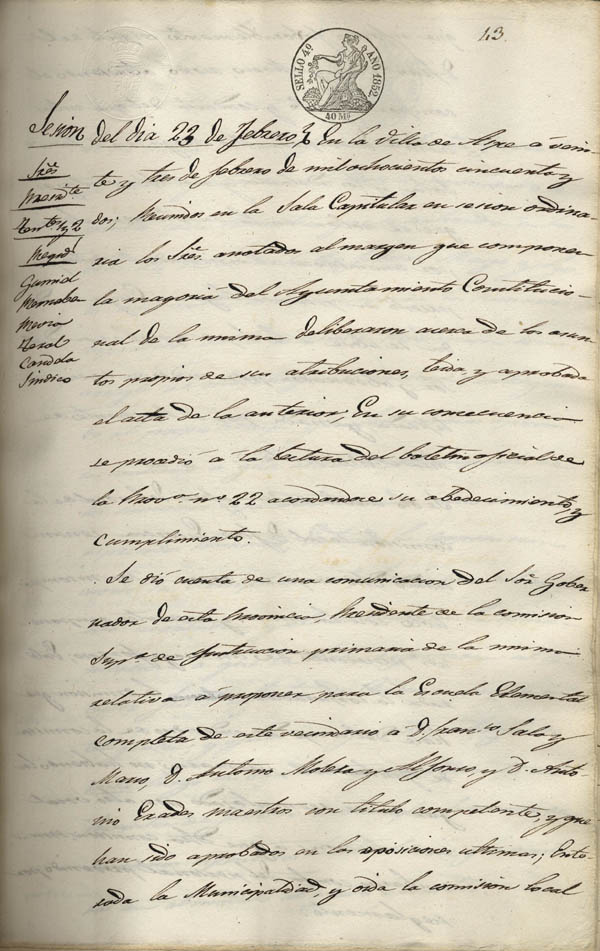 43.
SELLO 4º AÑO 1852.
40 Ms
Sesion del dia 23 de febrero } En la Villa de Aspe á vein
te y tres de febrero de mil ochocientos cincuenta y
dos; Reunidos en la Sala Capitular en sesion ordina
ria los Sres. anotados al margen que componen
la mayoria del Ayuntamiento Constitucio
nal de la misma deliberaron acerca de los asun
tos propios de sus atribuciones, leida y aprobada
el acta de la anterior, En su consecuencia
se procedió á la lectura del boletin oficial de
la Prova. nº 22 acordandose su obedecimiento y
cumplimiento.
Se dió cuenta de una comunicacion del Sor. Gober
nador de esta Provincia, Presidente de la comision
Supr. de Instrucion primaria de la misma
relativa á proponer para la Escuela Elemental
completa de este vecindario á D. Franco. Sala y
D. Antonio Molera y Alfonso, y D. Anto
nio maestros con titulo competente, y que
han sido aprobados en las oposiciones ultimas; Ente
rada la Municipalidad, y oida la comision local
Sres.
Presidte.
Tentes 1 y 2
Regid
Bernabeu
Candela
Sindico